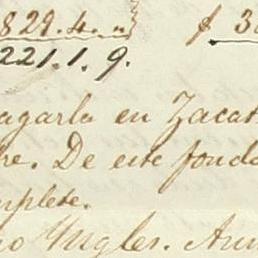 829.4.
221.1.9.
agarla en Zacat
re. De este fondo
mplete.
Yngles.